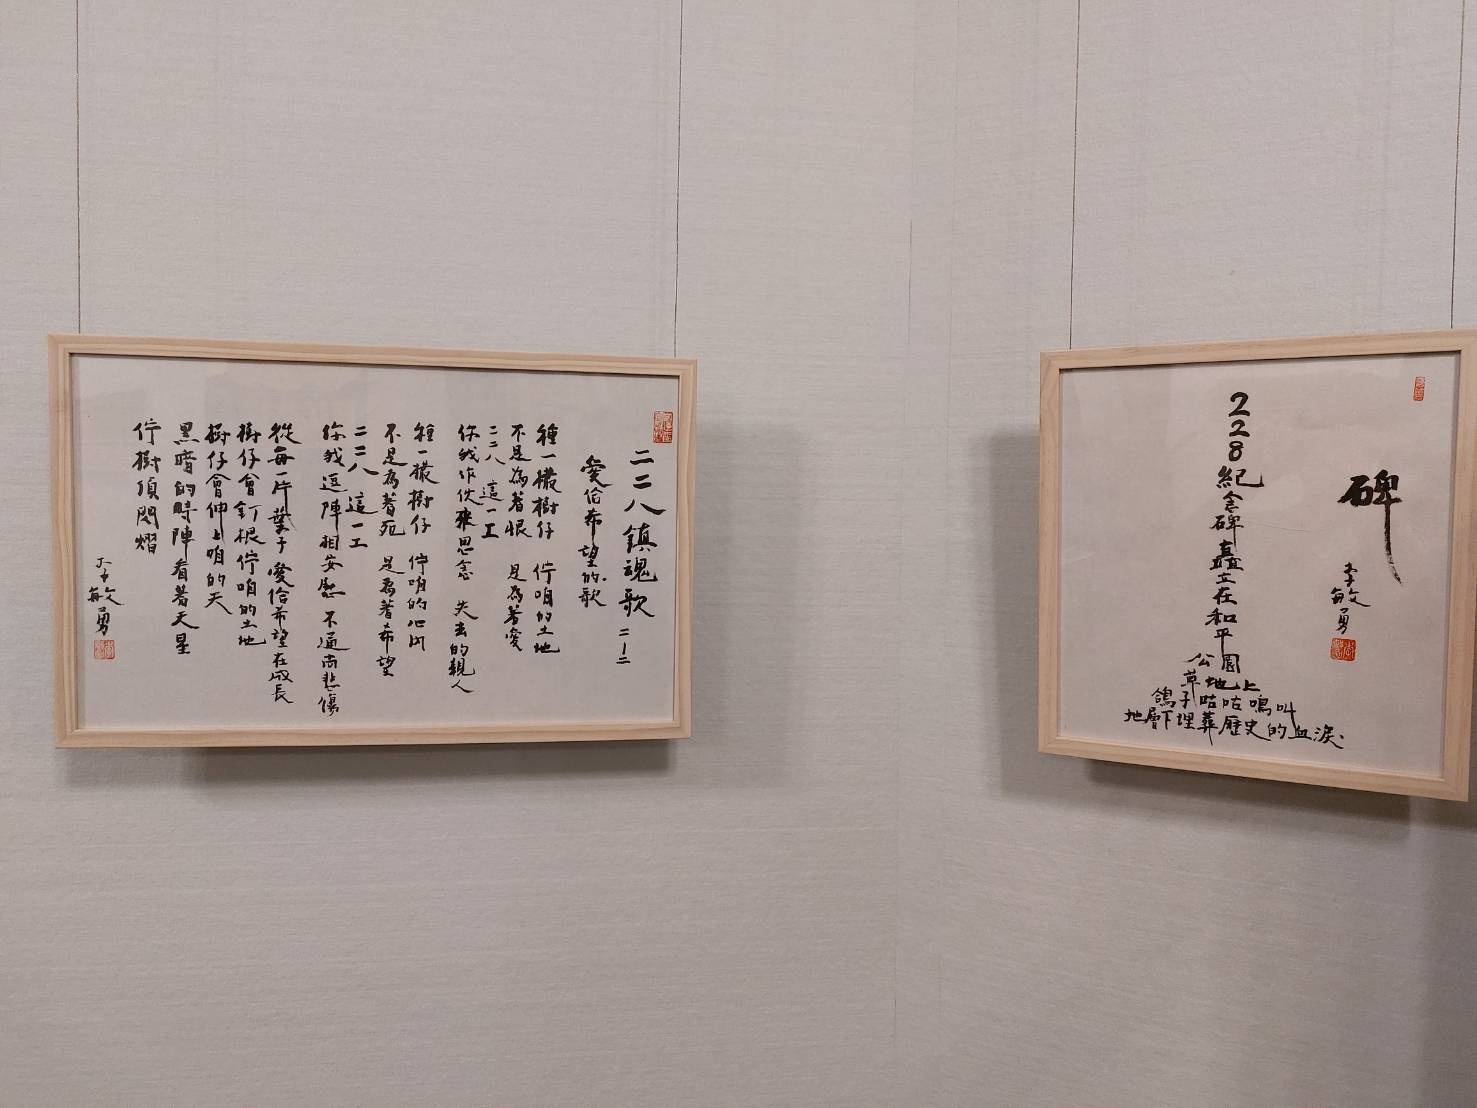 二二八鎮魂歌 二-二
愛佮希望的歌
種一欉樹仔 佇咱的土地
不是為著恨 是為著愛
二二八 這一工
你我作伙來思念 失去的親人
種一欉樹仔 佇咱的心內
不是為著死 是為著希望
二二八 這一工
你我逗陣相安慰 不通尚悲傷
從每一片葉子 愛佮希望在成長
樹仔會釘根佇咱的土地
樹仔會伸上咱的天
黑暗的時陣看著天星
佇樹頂閃熠
李敏勇
碑
李敏勇
228紀念碑矗立在和平
公園
草地上
鴿子咕咕鳴叫
地層下埋葬歷史的血淚